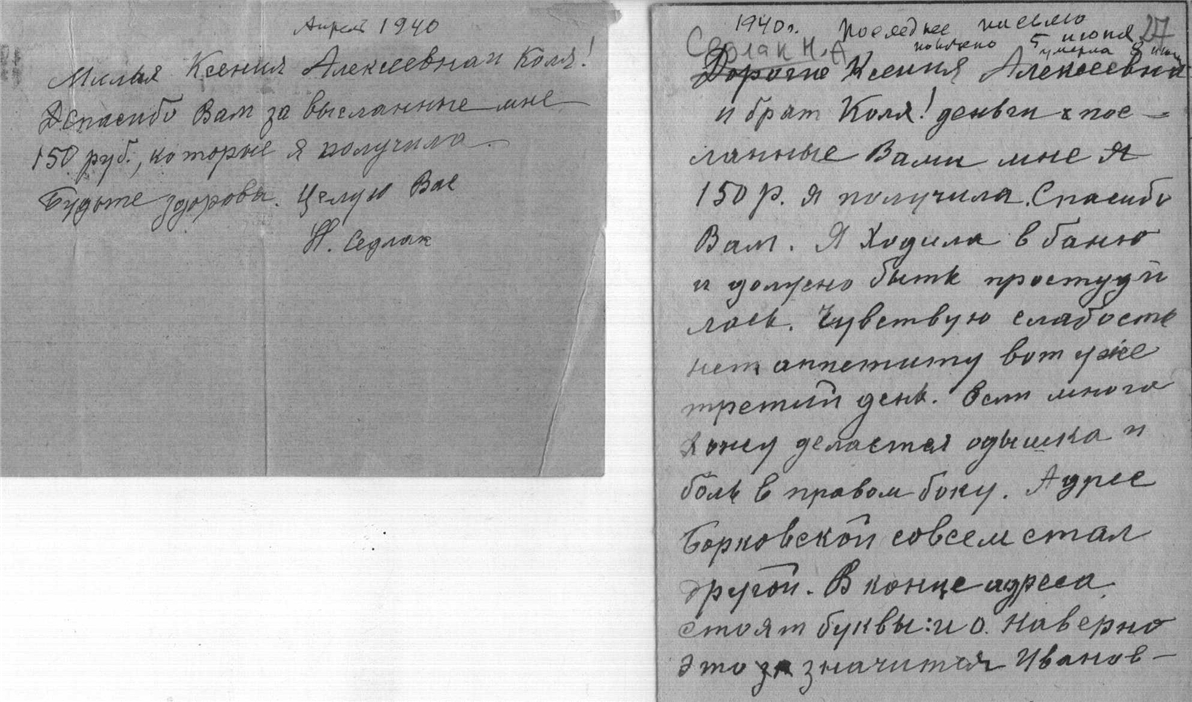 Апрель 1940
Милыя Ксения Алексеевна и Коля!
Спасибо Вам за высланные мне
150 руб., которые я получила.
Будьте здоровы. Целую Вас
Н. Седлак
1940г. Последнее письмо 27
Седлак Н.А. 5 июня
умерла 8
Дорогие Ксения Алексеевна
и брат Коля! деньги пос-
ланные Вами мне я
150 р. я получила. Спасибо
Вам. Я ходила в баню
и должно быть простуди
лась. Чувствую слабость
нет аппетиту вот уже
третий день. Если много
хожу делается одышка и
боль в правом боку. Адрес
Борковской совсем стал
другой. В конце адреса
стоят буквы: и о. Наверно
это значится Иванов-